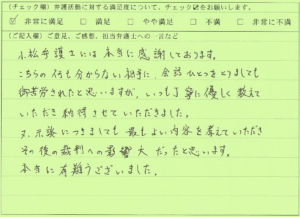 (チェック欄)弁護活動に対する満足度について、チェック☑をお願いします。
☑非常に満足 □満足 □やや満足 □不満 □非常に不満
(ご記入欄)ご意見、ご感想、担当弁護士への一言など
小松弁護士には本当に感謝しております。
こちらの何も分からない相手に、会話ひとつをとりましても
御苦労されたと思いますが、いつも丁寧に優しく教えて
いただき納得させていただきました。
又、示談につきましても最もよい内容を考えていただき
その後の裁判への影響大だったと思います。
本当に有難うございました。